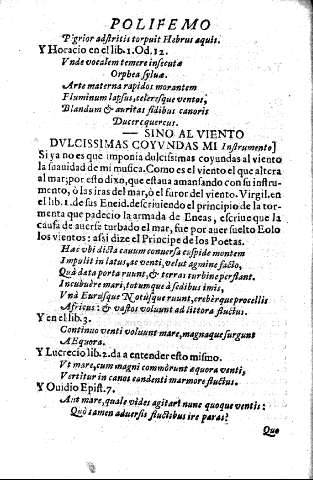 POLIFEMO
Pigrior adstritis torpuit Hebrus aquis.
Y Horacio en el lib. 1. Od. 12.
Vnde vocalem temere insecutæ
Orphea syluæ.
Arte materna rapidos morantem
Fluminum lapsus, celeresque ventos,
Blandum & auritas fidibus canoris
Ducere quercus.
— SINO AL VIENTO
DVLCISSIMAS COYVNDAS MI Instrumento]
Si ya no es que imponia dulcissimas coyundas al viento
la suauidad de mi musica. Como es el viento el que altera
al mar; por esto dixo, que estaua amansando con su instru-
mento, ò las iras del mar, ò el furor del viento. Virgil. en
el lib. 1. de sus Eneid. descriuiendo el principio de la tor-
menta que padecio la armada de Eneas, escriue que la
causa de auerse turbado el mar, fue por auer suelto Eolo
los vientos: assi dize el Principe de los Poetas.
Hæc vbi dicta cauum conuersa cuspide montem
Impulit in latus, ac venti, velut agmine facto,
Quà data porta ruunt, & terras turbine perflant.
Incubuère mari, totumque à sedibus imis,
Vnà Eurusque Notusque ruunt, crebèrque procellis
Africus: & vastos voluunt ad littora fluctus.
Y en el lib. 3.
Continuo venti voluunt mare, magnaque surgunt
AEquora.
Y Lucrecio lib. 2. da a entender esto mismo.
Vt mare, cum magni commòrunt æquora venti,
Vertitur in canos candenti marmore fluctus.
Y Ouidio Epist. 7.
Aut mare, quale vides agitari nunc quoque ventis:
Quò tamen aduersis fluctibus ire paras?
Que